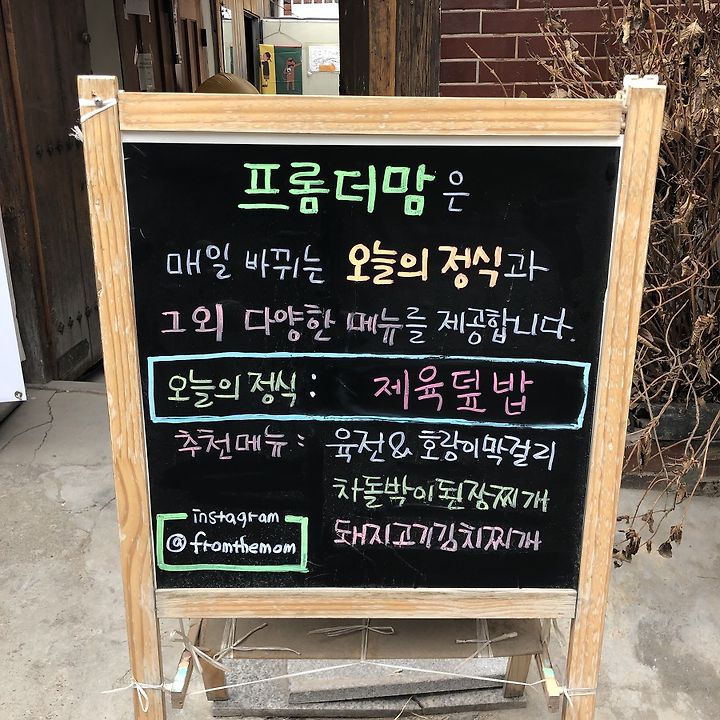 프롬더맘은
매일 바뀌는 오늘의 정식과
그외 다양한 메뉴를 제공합니다.
오늘의 정식 : 제육덮밥
추천메뉴 : 육전 & 호랑이막걸리
차돌박이된장찌개
돼지고기김치찌개
instagram
@fromthemom